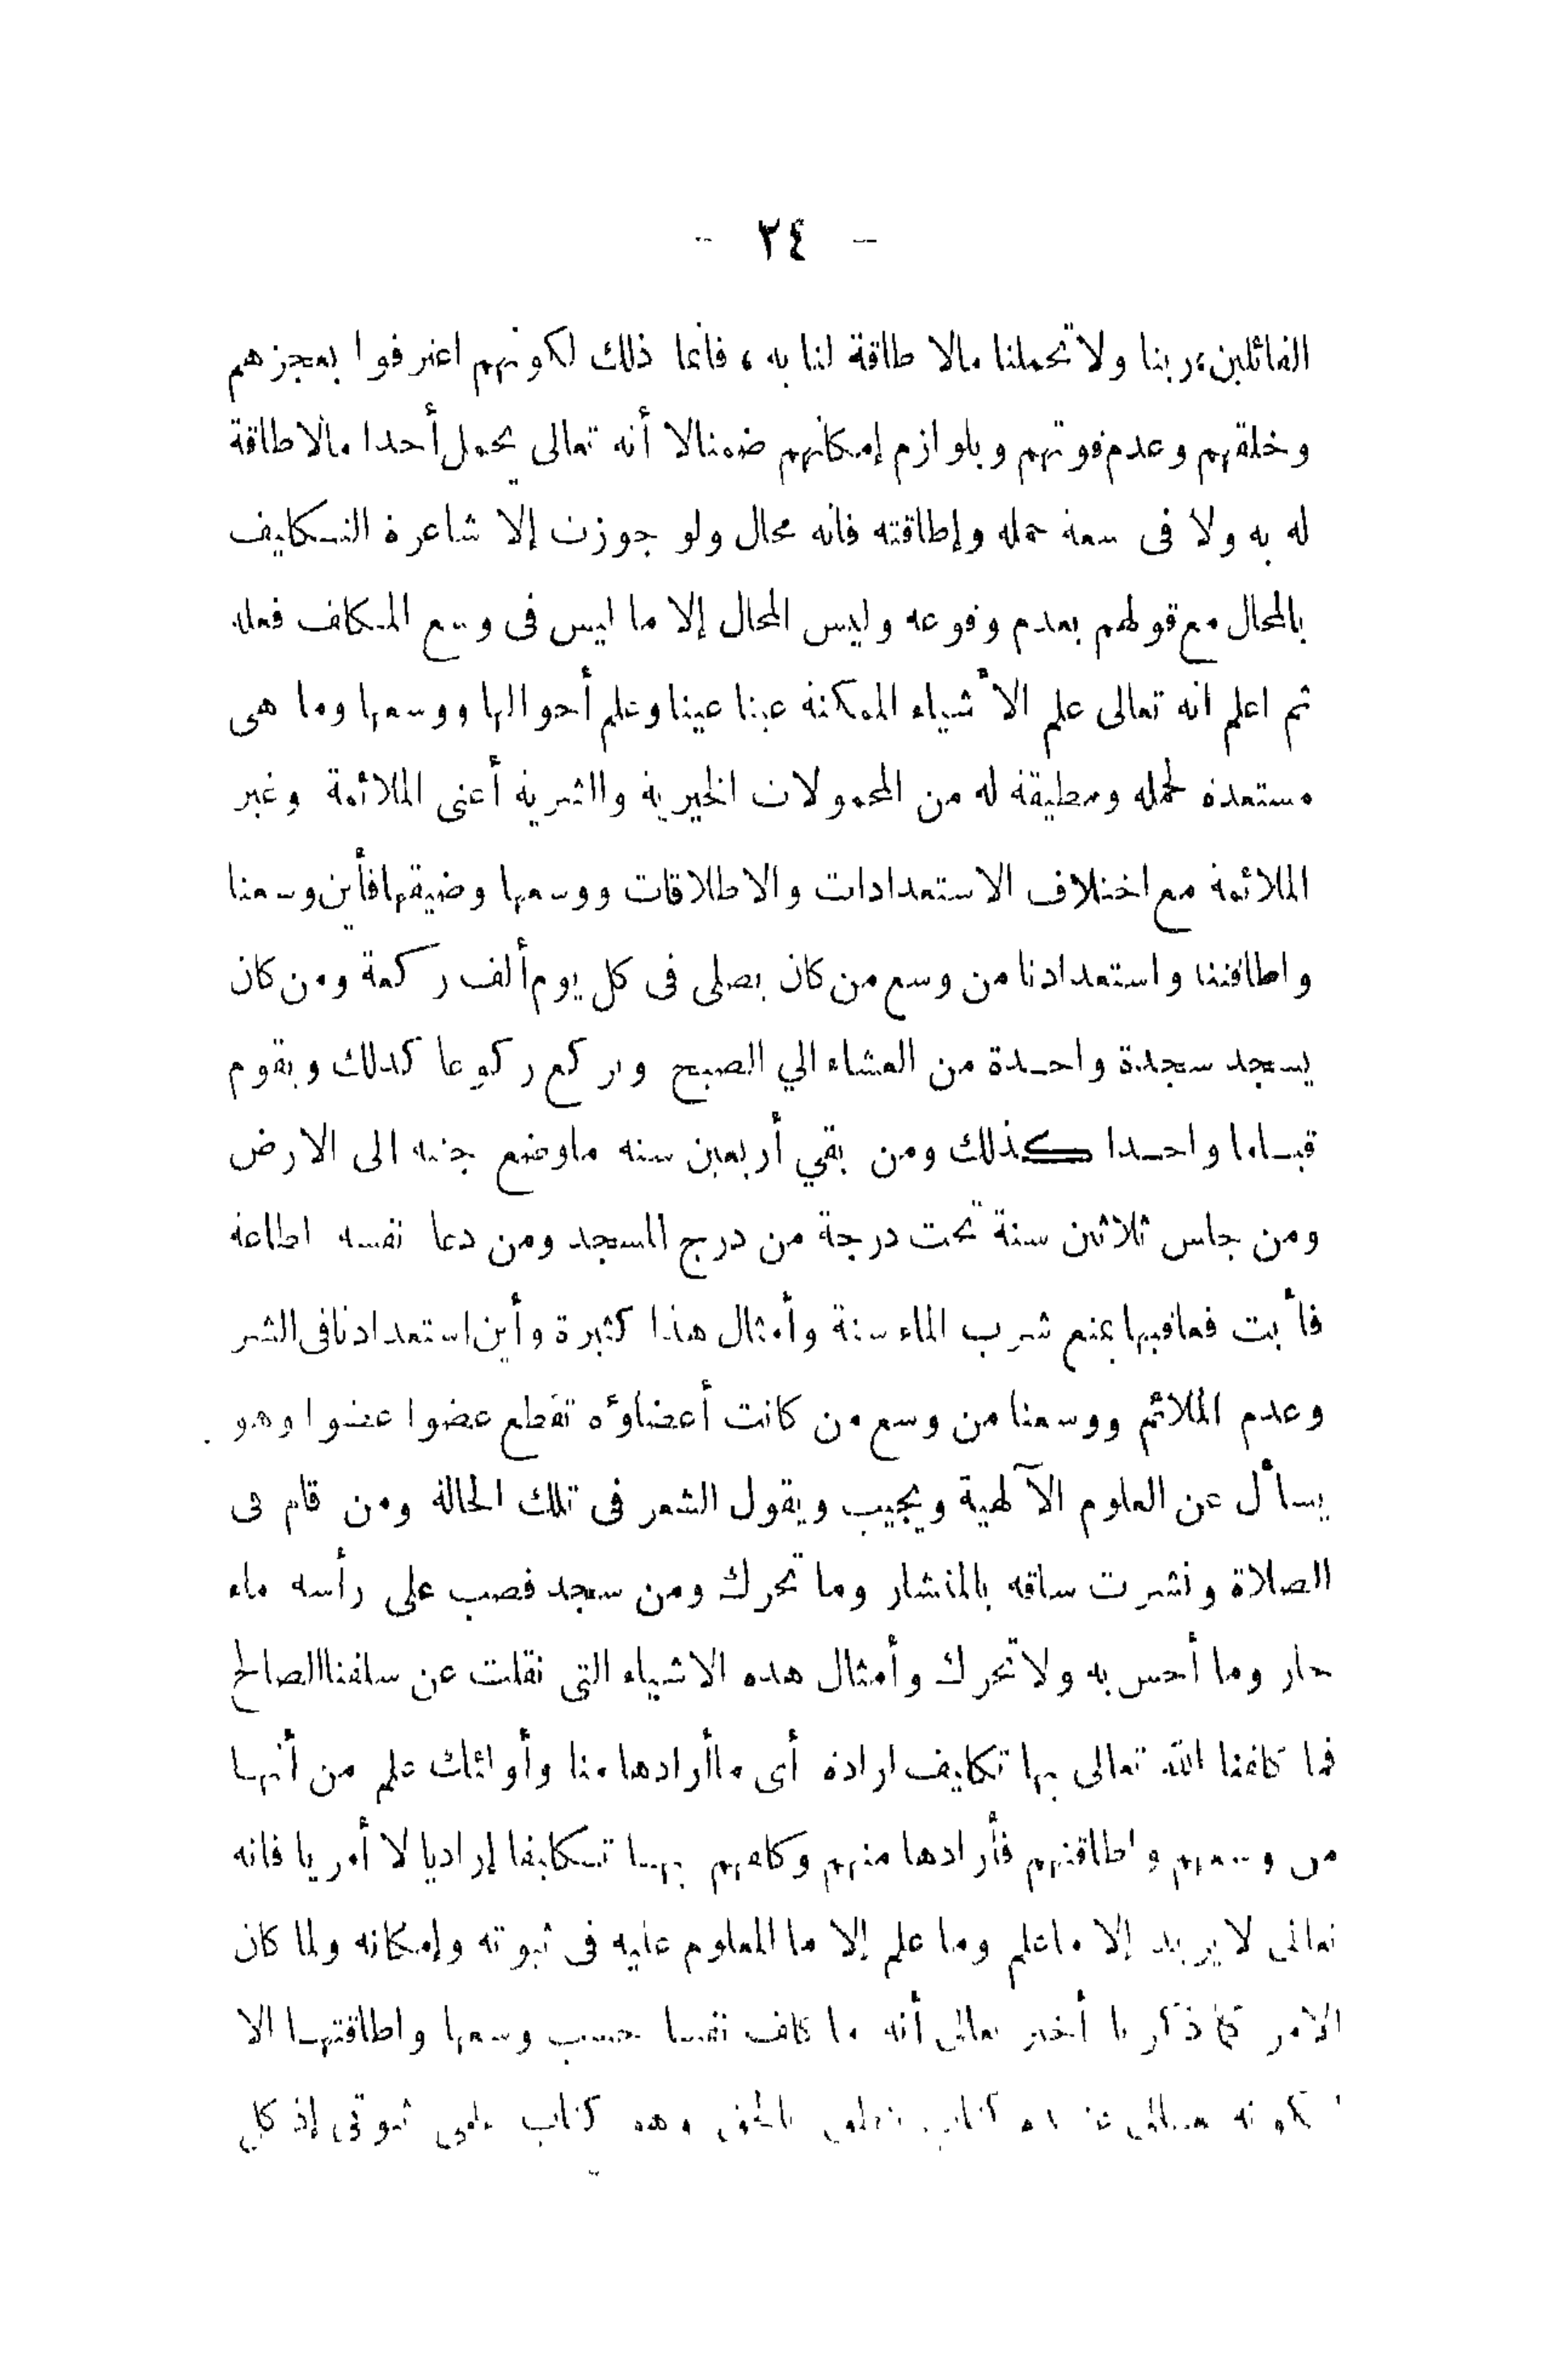 - ٢٤ -
القائلين، ربنا ولا تحملنا مالا طاقة لنا به، فانما ذلك لكونهم اعترفوا بعجزهم
وخلقهم وعدم قوتهم وبلوازم إمكانهم ضمنا لا أنه تعالى يحمل أحدا مالا طاقة
له به ولا فى سعة حمله وإطاقته فانه محال ولو جوزت إلا شاعرة التكليف
بالمحال مع قولهم بعدم وقوعه وليس المحال إلا ما ليس فى وسع المكلف فعله
ثم اعلم انه تعالى علم الأشياء الممكنة عينا عينا وعلم أحوالها ووسعها وما هى
مستعدة لحمله ومطيقة له من المحمولات الخيرية والشرية أعنى الملائمة وغير
الملائمة مع اختلاف الاستعدادات والاطلاقات ووسعها وضيقها فأين وسعنا
واطاقتنا واستعدادنا من وسع من كان يصلى فى كل يوم ألف ركعة ومن كان
يسجد سجدة واحدة من العشاء الي الصبح ويركع ركوعا كدلك ويقوم
قياما واحدا كذلك ومن بقي أربعين سنه ماوضع جنبه الى الارض
ومن جلس ثلاثين سنة تحت درجة من درج المسجد ومن دعا نفسه اطاعة
فأبت فعاقبها بمنع شرب الماء سنة وأمثال هذا كثيرة وأين استعدادنا فى الشر
وعدم الملائم ووسعنا من وسع من كانت أعضاؤه تقطع عضوا عضوا وهو
يسأل عن العلوم الآلهية ويجيب ويقول الشعر فى تلك الحالة ومن قام فى
الصلاة ونشرت ساقه بالمنشار وما تحرك ومن سجد فصب على رأسه ماء
حار وما أحس به ولا تحرك وأمثال هده الاشياء التى نقلت عن سلفنا الصالح
فما كلفنا الله تعالى بها تكليف ارادة أى ماأرادها منا وأوائك علم من أنها
من وسعهم واطاقتهم فأرادها منهم وكلفهم بهـا تـكليفا إراديا لا أمريا فانه
تعالى لا يريد إلا ماعلم وما علم إلا ما المعلوم عليه فى ثبوته وإمكانه ولما كان
الامر كما ذكرنا أخبر تعالى أنه ما كلف نفسا حسب وسعها واطاقتهـا الا
كتاب ينطق بالحق وهو كتاب علمى ثبوتى إذ كل